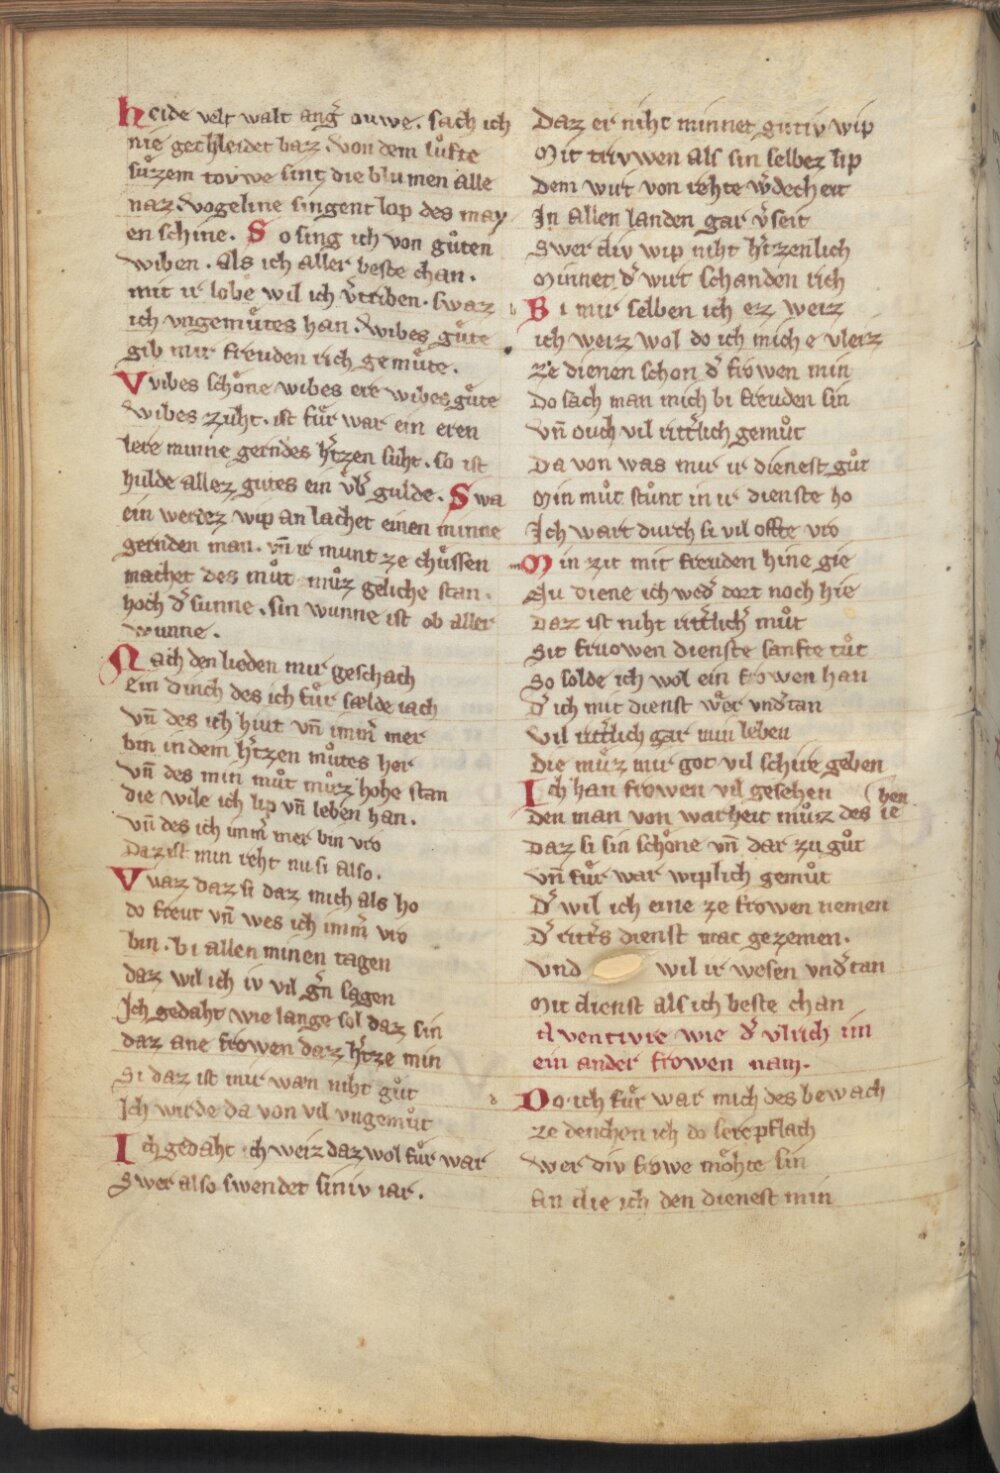 heide velt walt ang͛ ouwe . sach ich
nie gechleidet baz . von dem lufte
sůzem tovwe sint die blumen alle
naz . vogeline singent lop des may
en schine . So sing ich von gůten
wiben . als ich aller beste chan .
mit ir lobe wil ich v͛triben . swaz
ich vngemůtes han . wibes gůte
gib mir freuden rich gemůte .
Wibes schone wibes ere wibes gůte
wibes zuht . ist fůr war ein eren
lere minne gerndes h͛tzen suht . so ist
hulde allez gutes ein vb͛ gulde . Swa
ein werdez wip an lachet einen minne
gernden man . vn̄ ir munt ze chussen
machet des můt můz geliche stan .
hoch d͛ sunne . sin wunne ist ob aller
wunne .
Nach den lieden mir geschach
Ein dinch des ich fůr sælde iach
vn̄ des ich hiut vn̄ imm͛ mer
bin in dem h͛tzen můtes her
vn̄ des min můt můz hohe stan
die wile ich lip vn̄ leben han .
vn̄ des ich imm͛ mer bin vro
Daz ist min reht nu si also .
Waz daz si daz mich als ho
do freut vn̄ wes ich imm͛ vro
bin . bi allen minen tagen
daz wil ich iv vil g͛n sagen
Ich gedaht wie lange sol daz sin
daz ane frowen daz h͛tze min
Si daz ist mir wan niht gůt
Ich wirde da von vil vngemůt
Ich gedaht ich weiz daz wol fůr war
Swer also swendet siniv iar .
Daz er niht minnet gutiv wip
Mit triwen als sin selbez lip
Dem wirt von rehte w͛decheit
In allen landen gar v͛seit
Swer div wip niht h͛tzenlich
Minnet d͛ wirt schanden rich
Bi mir selben ich ez weiz
ich weiz wol do ich mich e vleiz
ze dienen schon d͛ frowen min
Do sach man mich bi freuden sin
vn̄ ouch vil ritt͛lich gemůt
Da von was mir ir dienest gůt
Min můt stůnt in ir dienste ho
Ich wart durch si vil offte vro
Min zit mit freuden hine gie
Nu diene ich wed͛ dort noch hie
Daz ist niht ritt͛lich͛ můt
Sit fruowen dienste sanfte tůt
So solde ich wol ein frowen han
D͛ ich mit dienst wær vnd͛tan
Vil ritt͛lich gar min leben
Die můz mir got vil schire geben
Ich han frowen vil gesehen (hen
Den man von warheit můz des ie
Daz si sin schone vn̄ dar zu gůt
vn̄ fůr war wiplich gemůt
D͛ wil ich eine ze frowen nemen
D͛ ritt͛s dienst mac gezemen .
vnd wil ir wesen vnd͛tan
Mit dienst als ich beste chan
Aventivre wie d͛ vlrich im
ein ander frowen nam .
Do ich fůr war mich des bewach
ze denchen ich do sere pflach
wer div frowe mohte sin
An die ich den dienest min